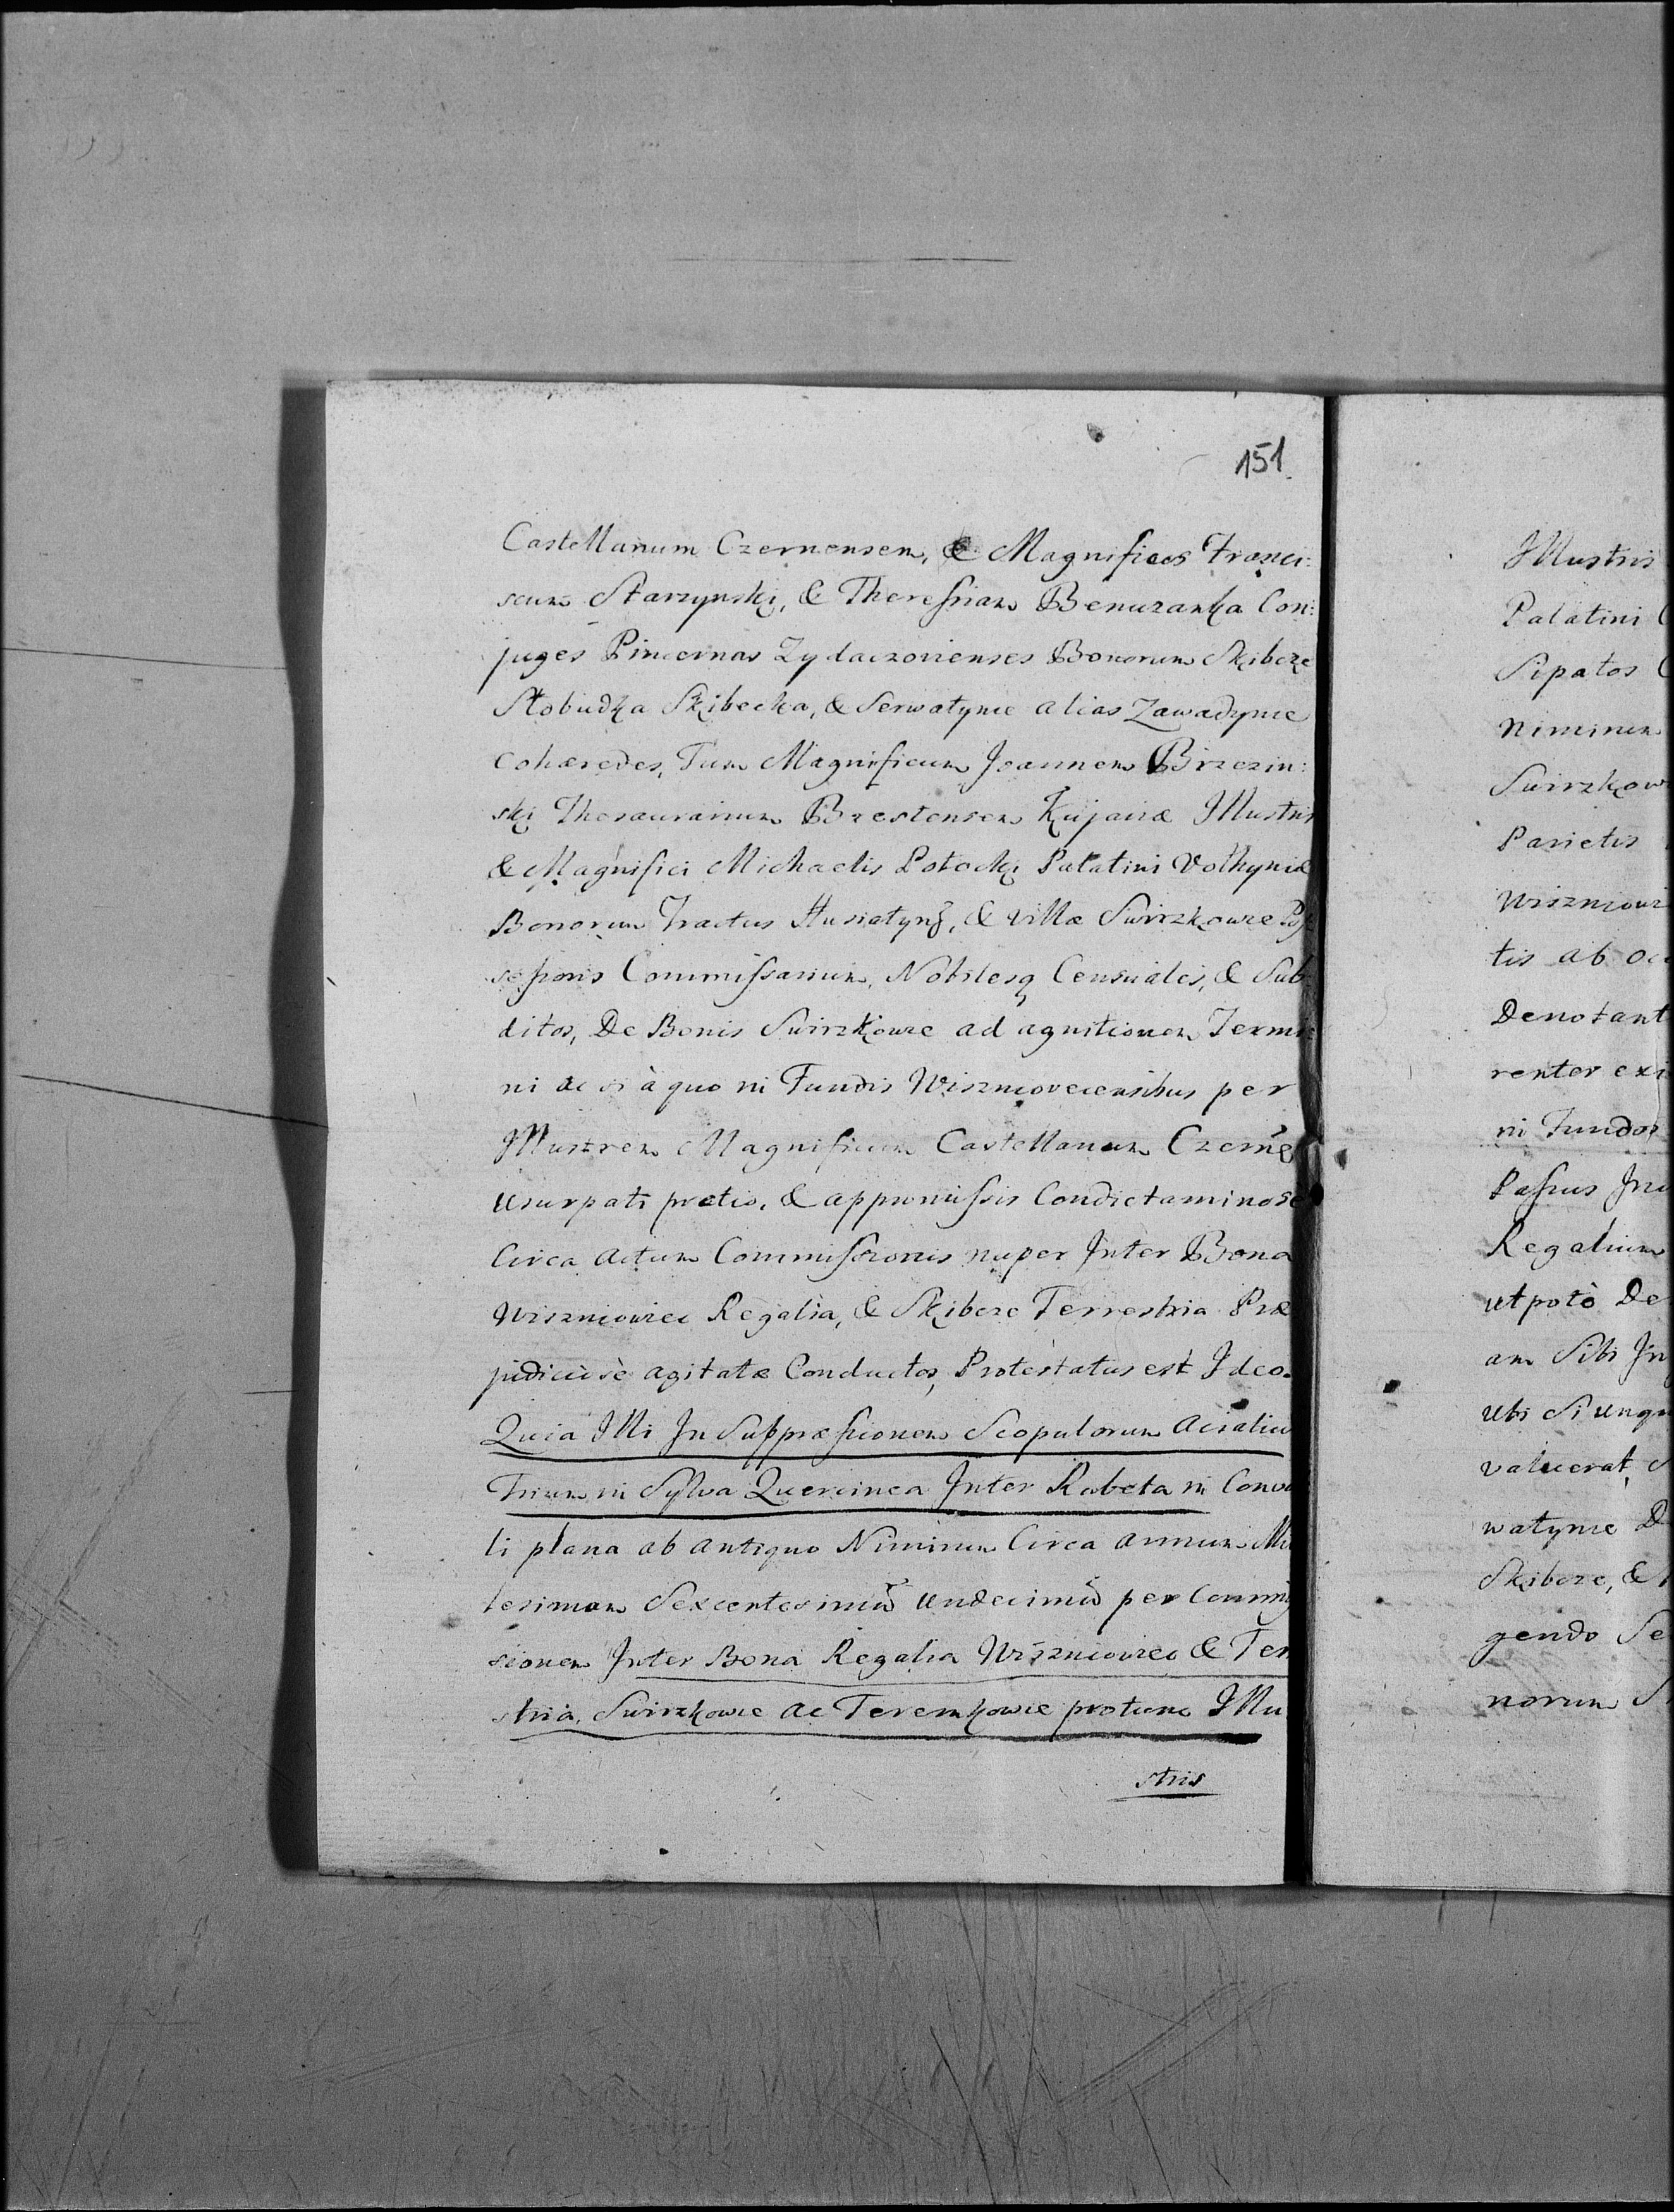 151
Castellanum Czernensem, & Magnificos Franci:
scum Starzynski, & Theressiam Benuzanka Con:
juges Pincernas Zydaczovienses Bonorum Skibeze
Słobudka Skibecka, & Serwatynce alias Zawadynce
Cohæredes, Tum Magnificum Joannem Brzezin:
ski Thesaurarium Brestensem Kujaviæ Illustris
& Magnifici Michaelis Potocki Palatini Volhyniæ
Bonorum Tractus Husiatyn, & villæ Swirzkowce Pos
sessoris Commissarium, Nobilesq Censuales, & Sub
ditos, De Bonis Swirzkowce ad agnitionem Termi
ni ac si à quo in Fundis Wiszniovecensibus per
Illustrem Magnificum Castellanum Czerne
Usurpati pretio, & appromissis Condictaminose
Circa Actum Commissionis nuper Inter Bona
Wiszniowiec Regalia, & Skibeze Terrestria Præ
judiciosè agitatæ Conductos, Protestatus est Ideo.
Quia Illi In Suppressionem Scopulorum Acialium
Trium in Sylva Quercinea Inter Rubeta in Conva
li plana ab antiquo Nimirum Circa annum Mil
lesimum Sexcentesimum Undecimum per Commis
sionem Inter Bona Regalia Wiszniowiec & Ter
stria Swirzkowce ac Teremkowce protunc Illu
stris
Illustris
Palatini
Sipatos
Nimirum
Swirzkow
Parietis
Wiszniowi
tis ab oc
Denotant
renter exi
in Fundos
Passus
Regalium
utpotè De
am Sibi In
Ubi Si unqu
valuerat
watynce D
Skibeze, &
gendo Se
norum S